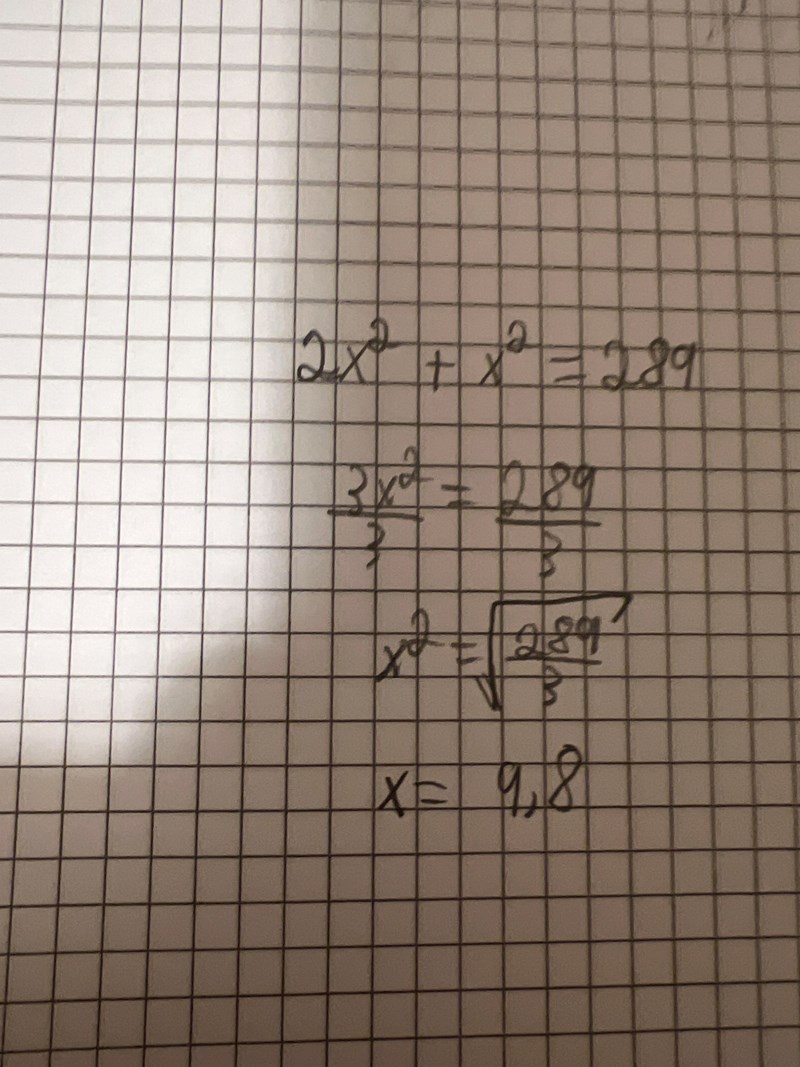 2x² + x² = 289
3x²/3 = 289/3
x² = √(289/3)
x = 9,8